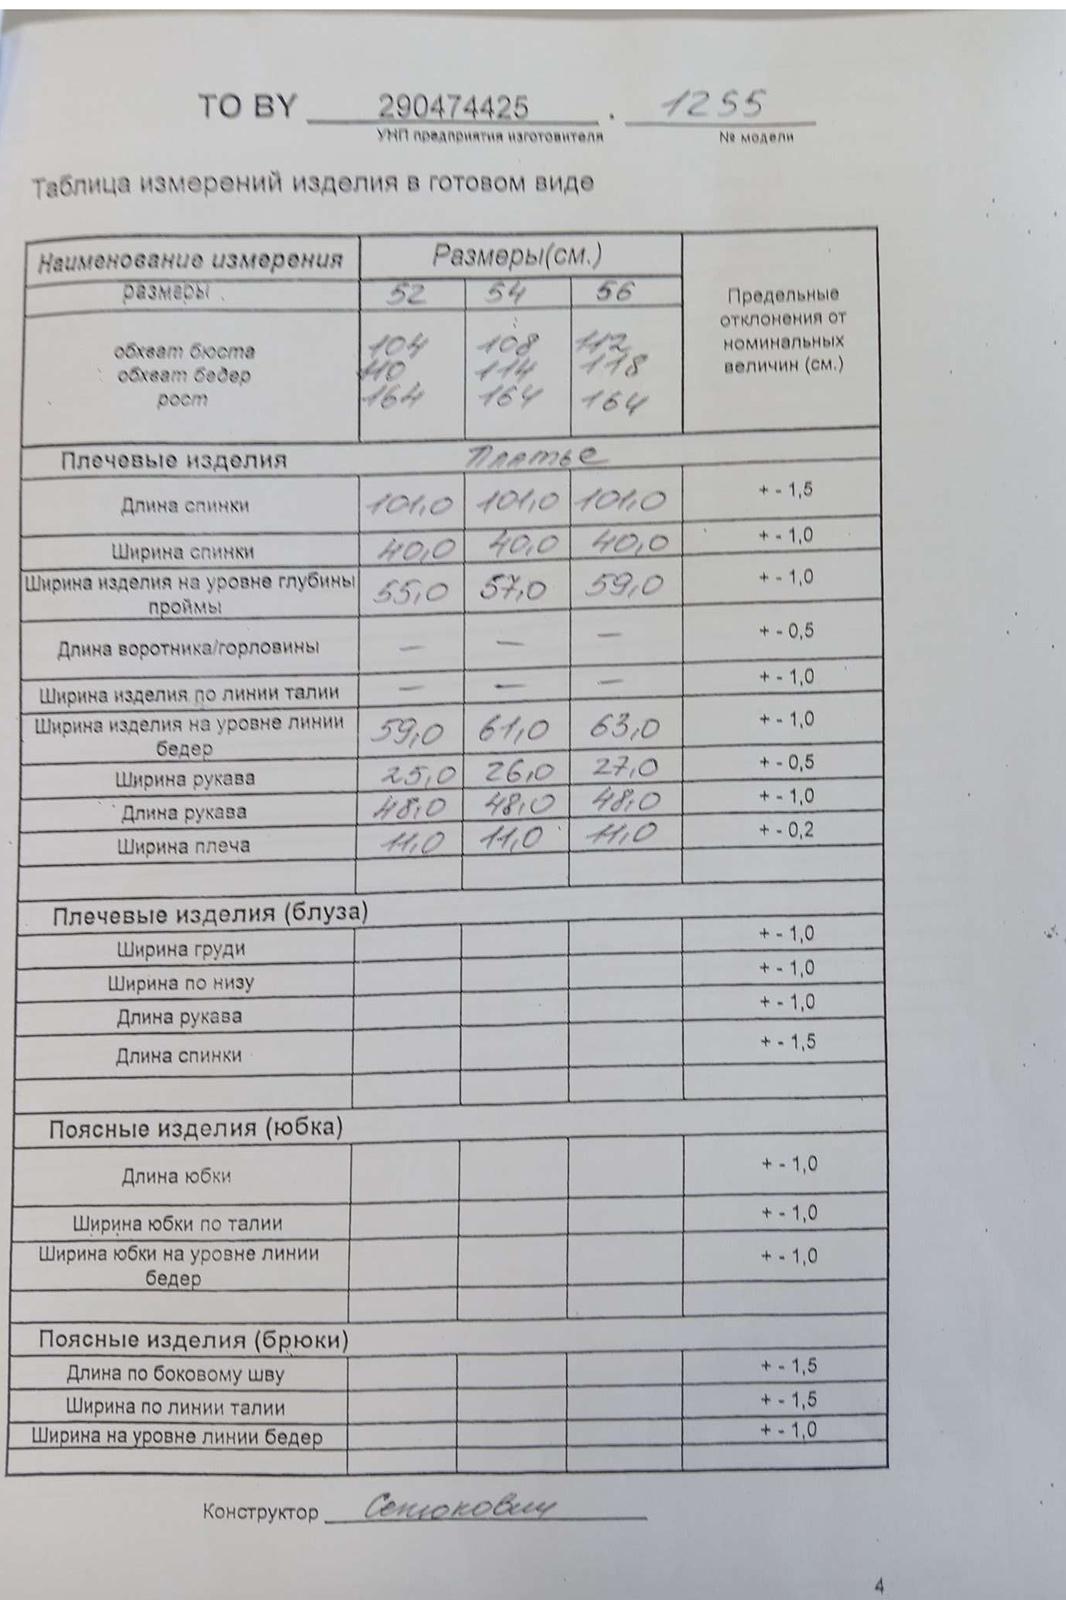 ТО BY 290474425 . 1255
УНП предприятия изготовителя № модели
Таблица измерений изделия в готовом виде
Наименование измерения Размеры(см.) Предельные отклонения от номинальных величин (см.)
размеры 52 54 56
обхват бюста 104 108 112
обхват бедер 110 114 118
рост 164 164 164
Плечевые изделия Платье
Длина спинки 101,0 101,0 101,0 + - 1,5
Ширина спинки 40,0 40,0 40,0 + - 1,0
Ширина изделия на уровне глубины проймы 55,0 57,0 59,0 + - 1,0
Длина воротника/горловины — — — + - 0,5
Ширина изделия по линии талии — — — + - 1,0
Ширина изделия на уровне линии бедер 59,0 61,0 63,0 + - 1,0
Ширина рукава 25,0 26,0 27,0 + - 0,5
Длина рукава 48,0 48,0 48,0 + - 1,0
Ширина плеча 11,0 11,0 11,0 + - 0,2
Плечевые изделия (блуза)
Ширина груди + - 1,0
Ширина по низу + - 1,0
Длина рукава + - 1,0
Длина спинки + - 1,5
Поясные изделия (юбка)
Длина юбки + - 1,0
Ширина юбки по талии + - 1,0
Ширина юбки на уровне линии бедер + - 1,0
Поясные изделия (брюки)
Длина по боковому шву + - 1,5
Ширина по линии талии + - 1,5
Ширина на уровне линии бедер + - 1,0
Конструктор
4